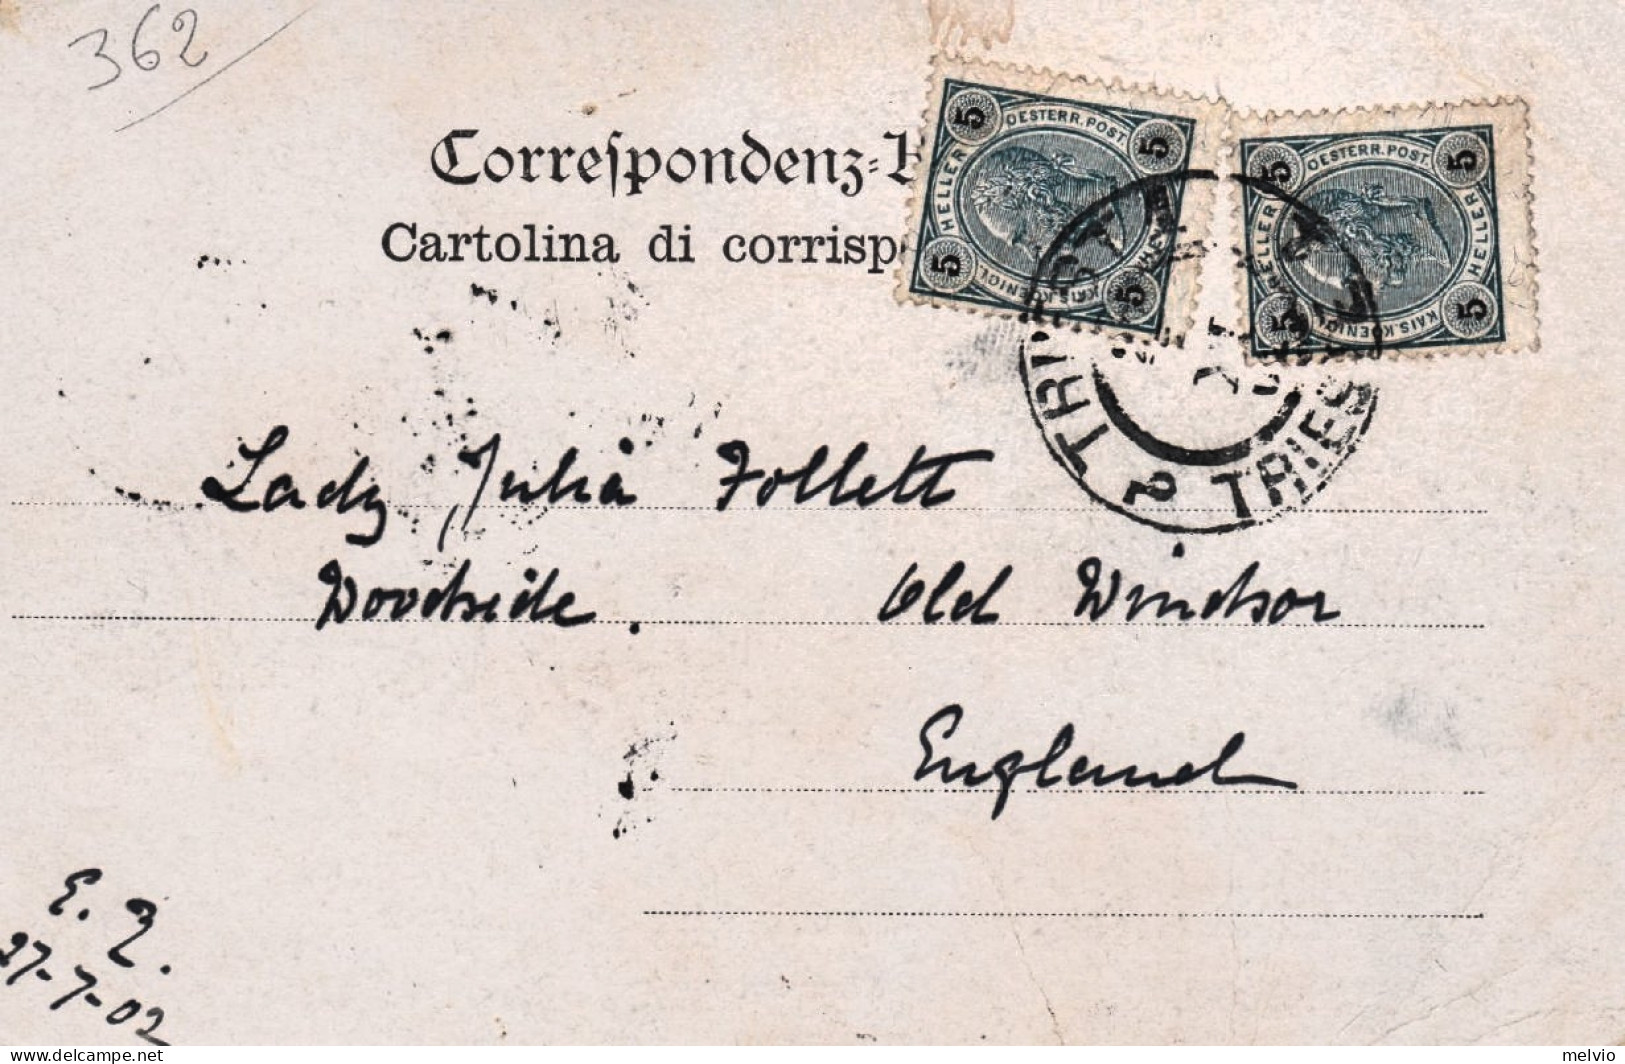 362
Correspondenz-
Cartolina di corrisp
5 OESTERR. POST. 5
HELLER
5 KAIS. KOENIGL. 5
5 OESTERR. POST. 5
HELLER HELLER
5 KAIS. KOENIGL. 5
2 TRIEST TRIESTE
Lady Julia Follett
Woodside. Old Windsor
England
E. Z.
27-7-02
melvio